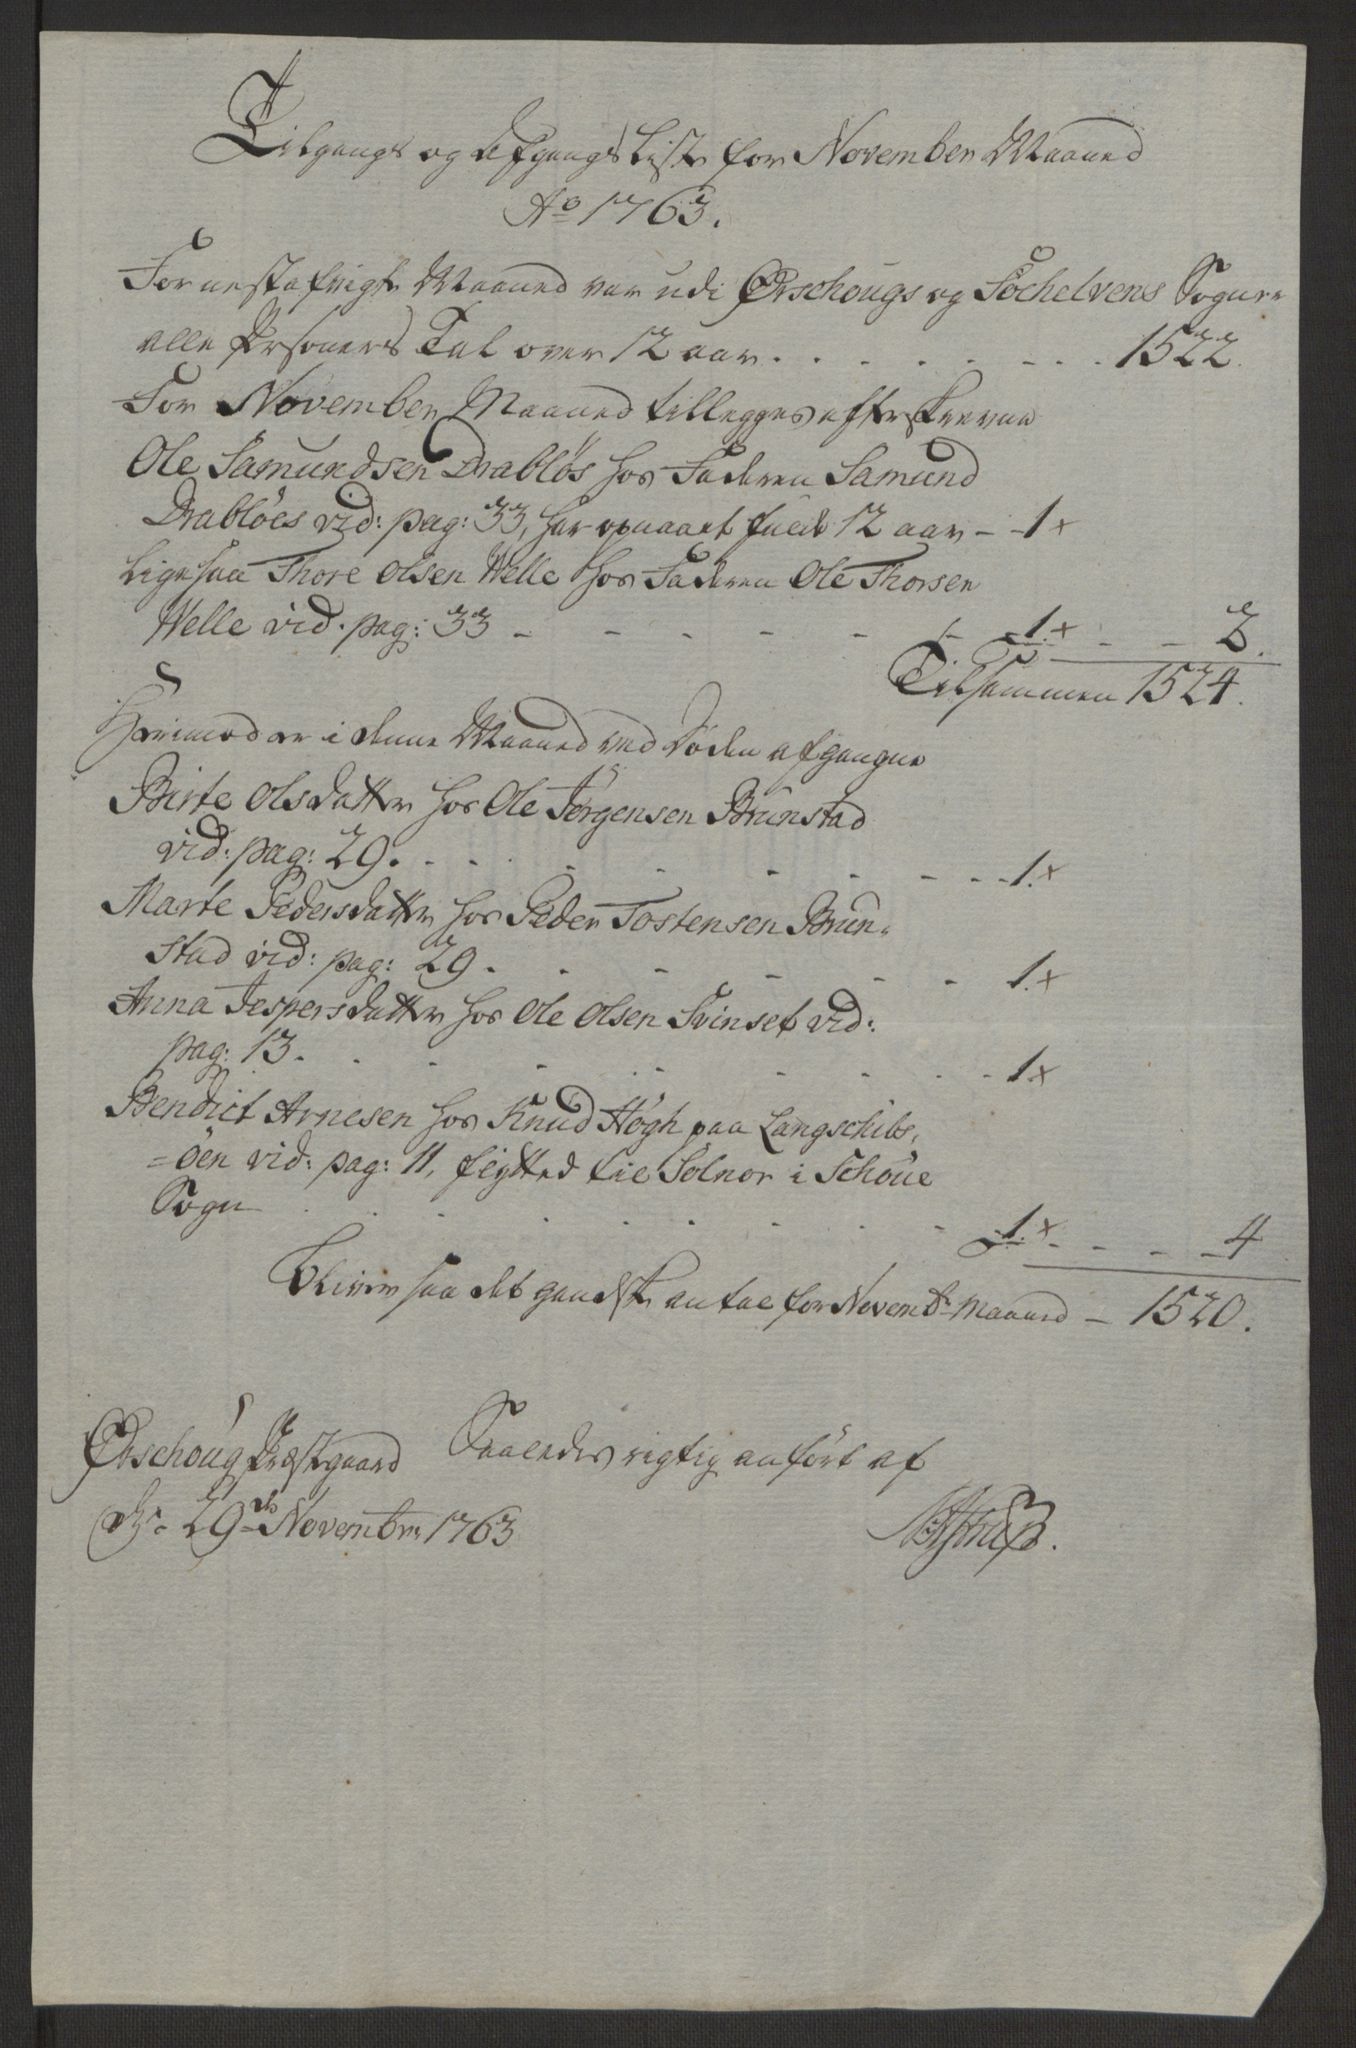 Tilgangs og Afgangs Liste for November Maaned
Ao 1763.
For nestafvigte Maaned var udi Ørschougs og Söchelvens Sogner
alle Personers Tal over 12 aar . . . . . . . . 1522.
For November Maaned tillegges efterskrevne
Ole Samundsen Drabløs hos Faderen Samund
Drablöes vid: pag: 33, har opnaaet fulde 12 aar - 1 +
Ligesaa Thore Olsen Welle hos Faderen Ole Thorsen
Welle vid. pag: 33 - - - - - - - 1. + - - 2.
Tilsammen 1524.
Herimod er i denne Maaned ved Döden afgangne
Birte Olsdatter hos Ole Jörgensen Brunstad
vid: pag: 29. - - . . - - - - - 1. +
Marte Pedersdatter hos Peder Tostensen Brun-
stad vid: pag: 29 . . - - - - 1. +
Anna Jespersdatter hos Ole Olsen Svinset vid:
pag: 13. . - - - - - - - 1. +
Bendict Arnesen hos Knud Högh paa Langschibs,
=öen vid: pag: 11, flytted til Solnor i Schoue
Sogn . . . . . . . - - 1. + - - - 4
Bliver saa det gandske antal for Novembr Maaned - 1520.
Ørschoug Præstgaard Saaledes rigtig anfört af
d. 29de Novembr: 1763